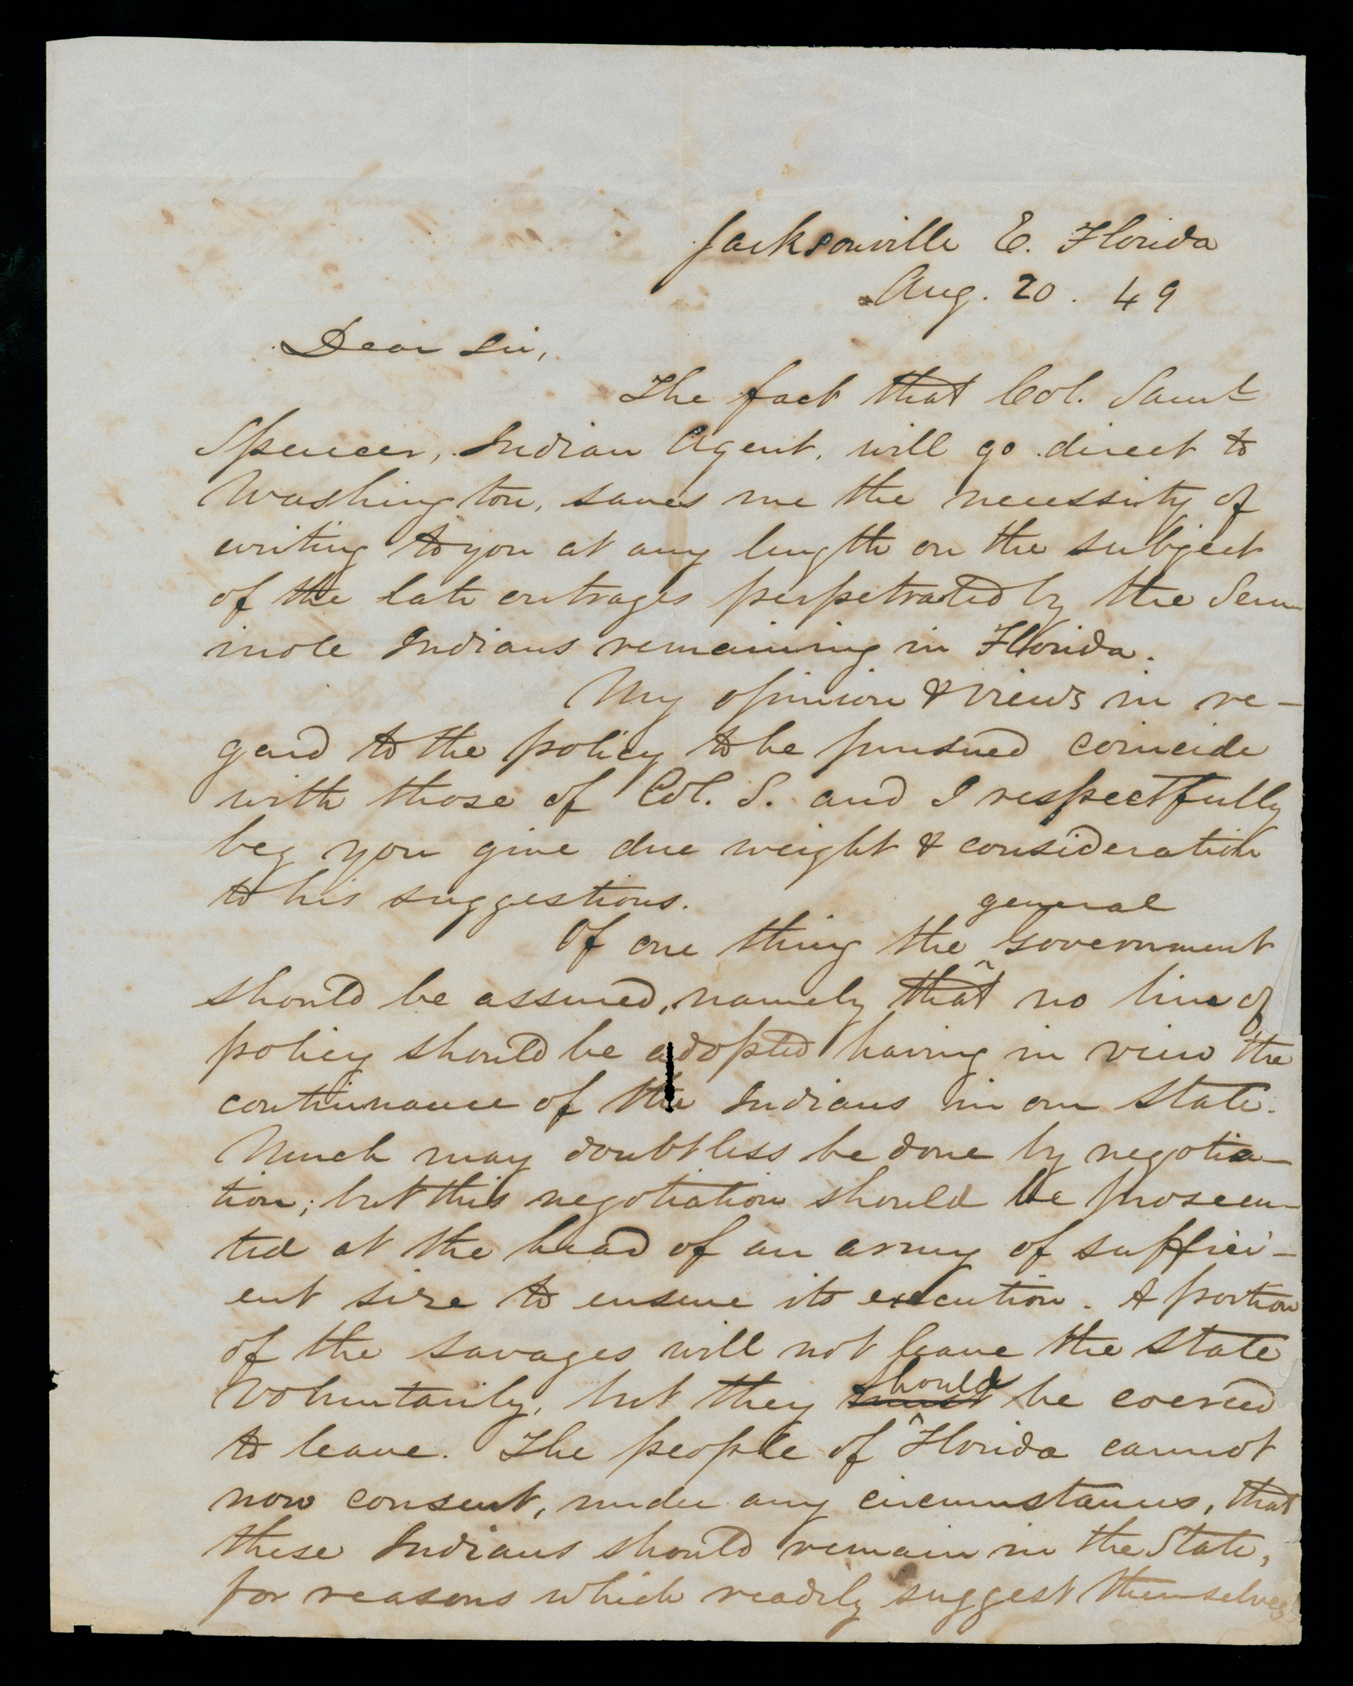 Jacksonville E. Florida
Aug. 20. 49
Dear Sir,
The fact that Col. Saml
Spencer, Indian Agent, will go direct to
Washington, saves me the necessity of
writing to you at any length on the subject
of the late outrages perpetrated by the Sem-
inole Indians remaining in Florida.
My opinion & views in re-
gard to the policy to be pursued coincide
with those of Col. S. and I respectfully
beg you give due weight & consideration
to his suggestions.
general
Of one thing the ^ Government
should be assured, namely that no line of
policy should be adopted having in view the
continuance of the Indians in our State.
Much may doubtless be done by negotia-
tion; but this negotiation should be prosecu-
ted at the head of an army of suffici-
ent size to ensure its execution. A portion
of the savages will not leave the State
should
voluntarily, but they must ^ be coerced
to leave. The people of Florida cannot
now consent, under any circumstances, that
these Indians should remain in the State,
for reasons which readily suggest themselves